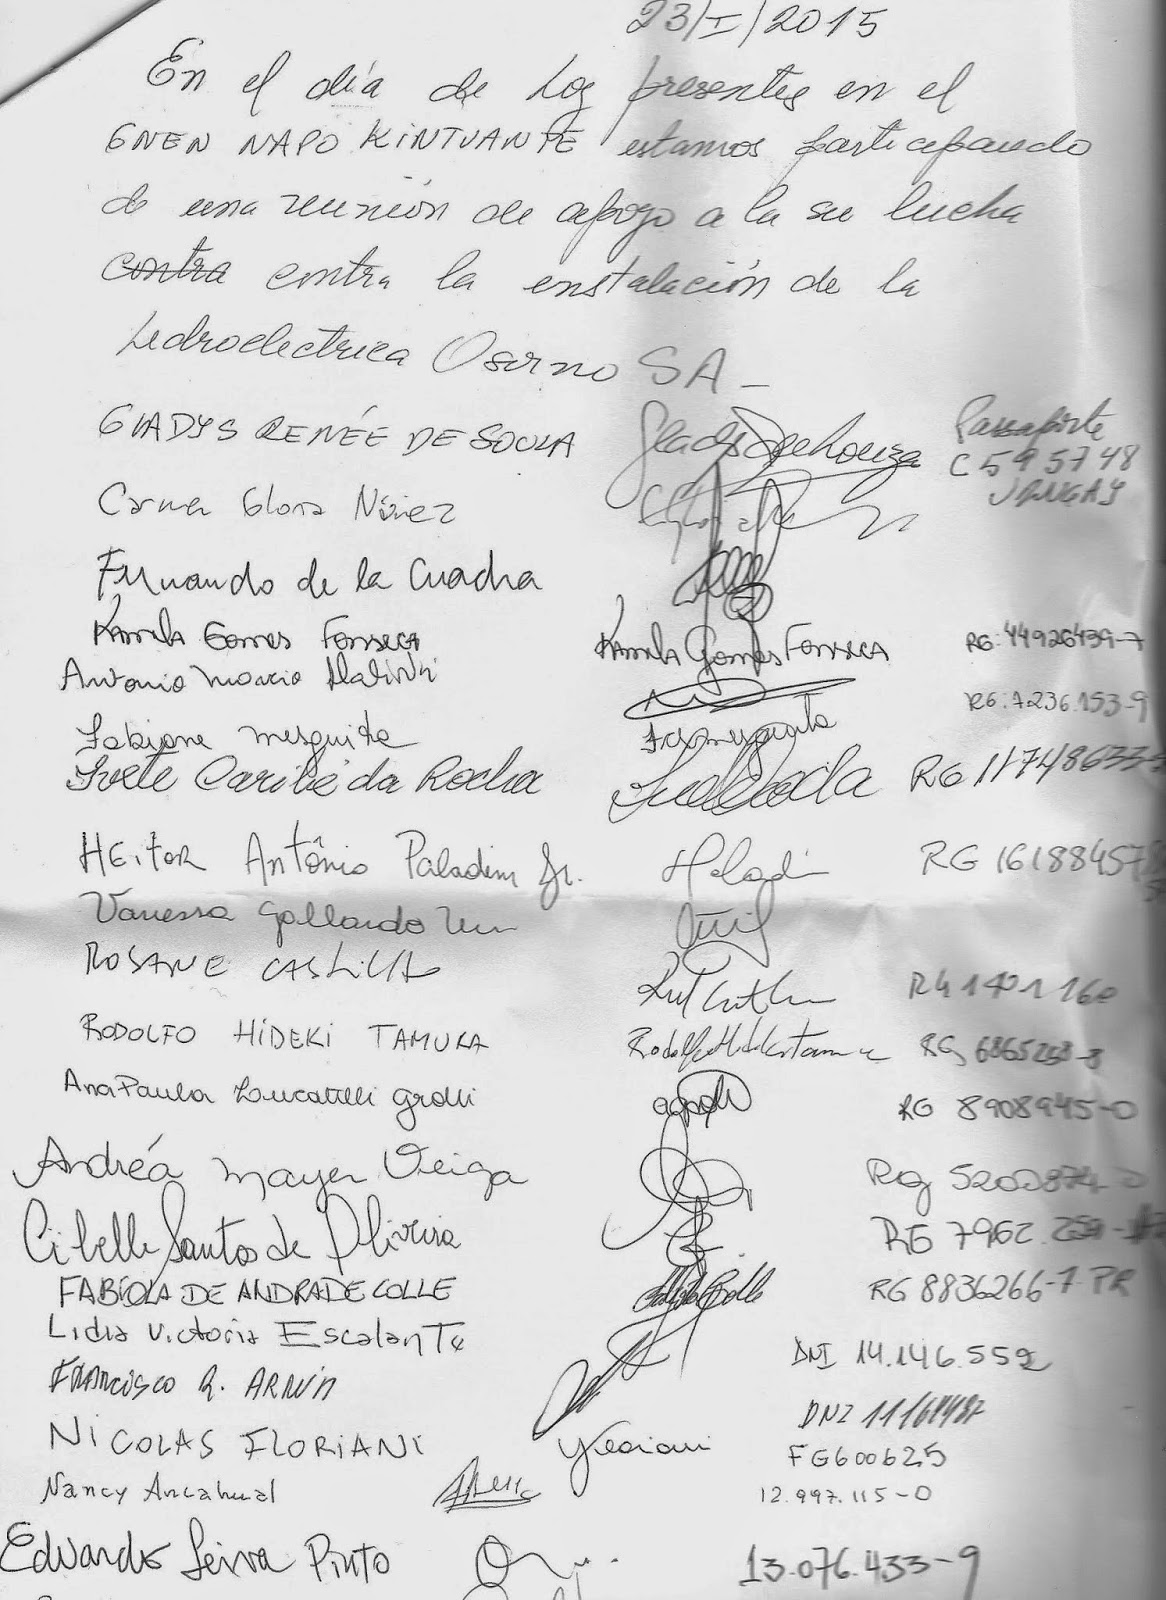 23/I/2015
En el día de Los presentes en el
GNEN MAPO KINTUANTE estamos participando
de una reunión de apoyo a la su lucha
contra contra la enstalación de la
hidroelectrica Osorno SA -
GLADYS RENÉE DE SOUZA Passaporte
C 595748
URUGAY
Carmen Gloria Núñez
Fernando de la Cuadra
Kamila Gomes Fonseca Kamila Gomes Fonseca RG: 44926439-7
Antonio Marcio RG: 7.236.153-9
Fabiane Mesquita
Ivete Caribé da Rocha RG 11748633-
HEitor Antônio Paladim Jr. RG 161884578
Vanessa Gallardo
ROSANE RG 1401160
RODOLFO HIDEKI TAMURA RG 6865258-8
Ana Paula Lucatelli grolli RG 8908945-0
Andréa Mayer Veiga RG 5200874-
Cibelle Santos de Oliveira RG 7962.259-
FABÍOLA DE ANDRADE COLLE RG 8836266-7 PR
Lidia Victoria EscalanTe DNI 14.146.552
FRANCISCO R. DNI
NICOLAS FLORIANI Floriani FG600625
Nancy Ancahual 12.997.115-0
Eduardo Leiva Pinto 13.076.433-9